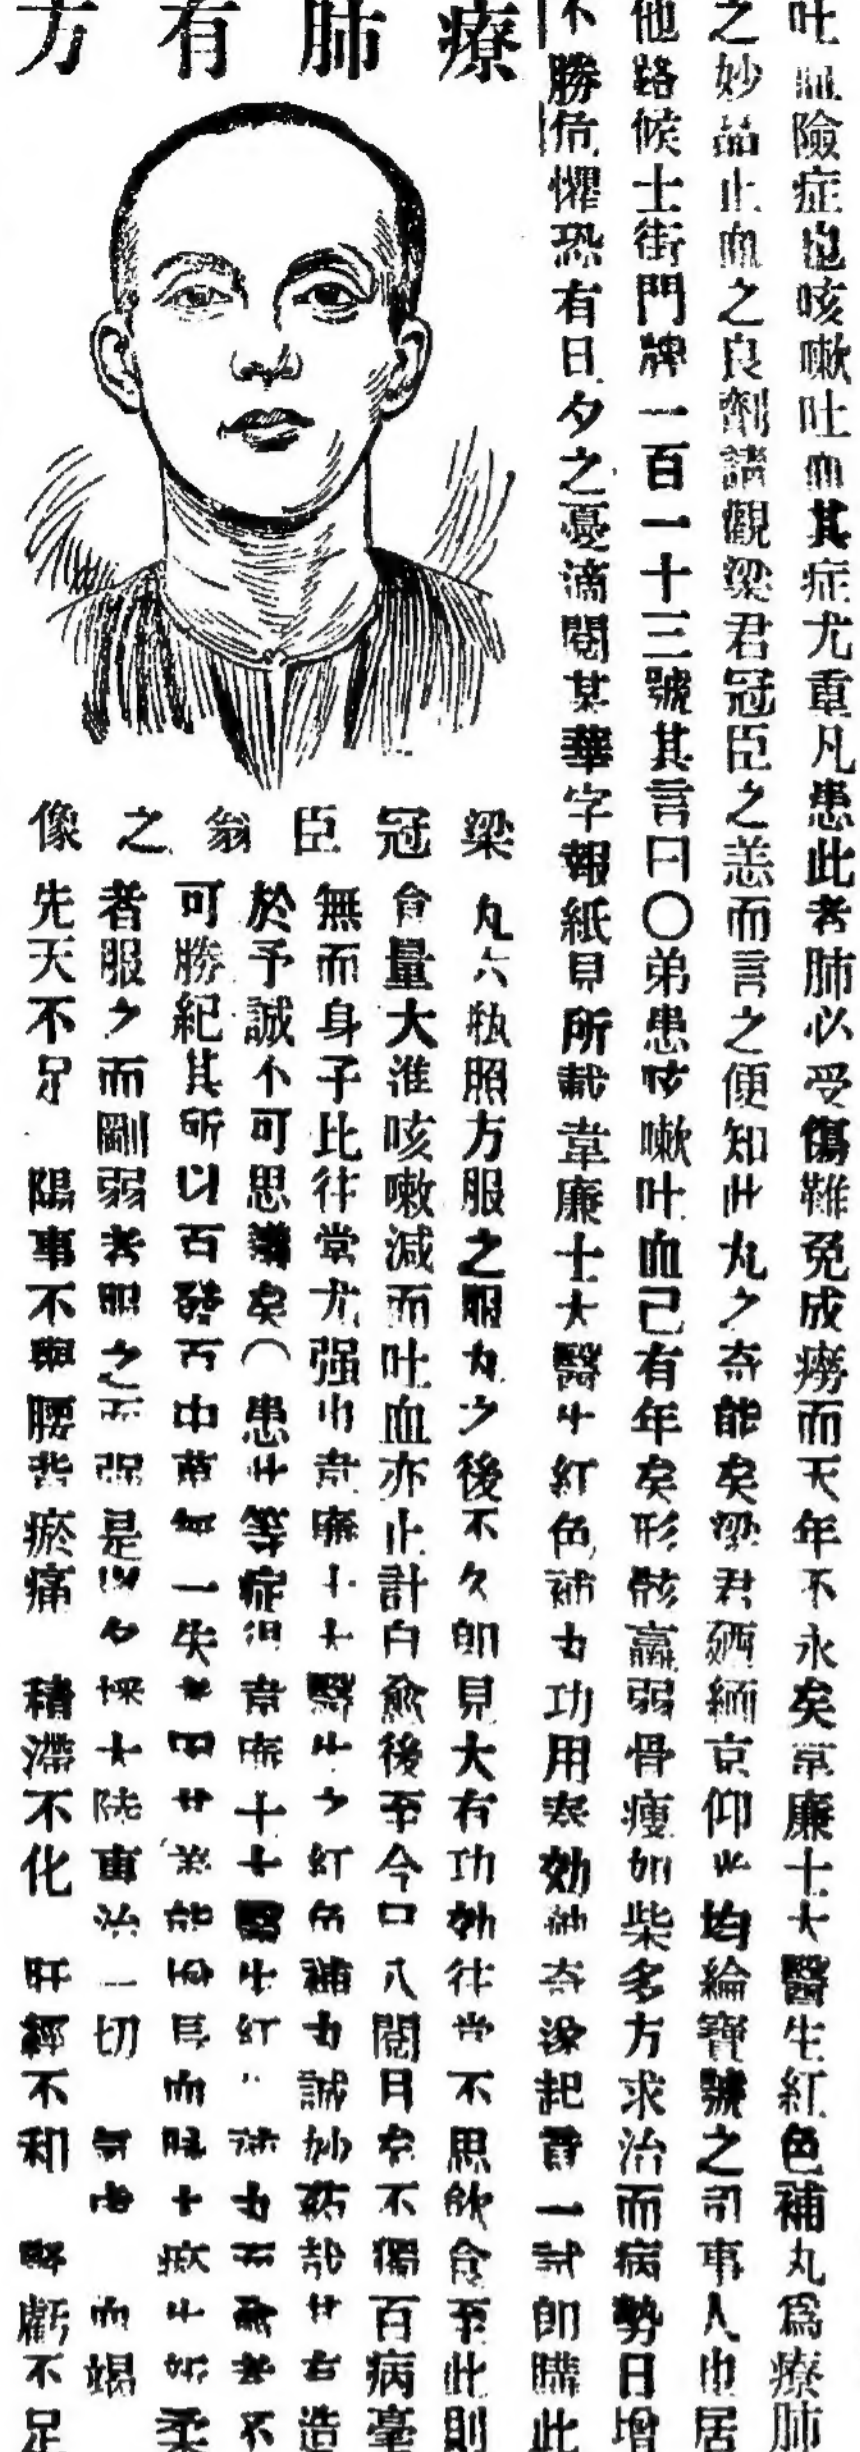 療肺有方
吐血險症也咳嗽吐血其症尤重凡患此者肺必受傷難免成癆而天年不永矣韋廉士大醫生紅色補丸爲療肺
之妙品止血之良劑請觀梁君冠臣之恙而言之便知此丸之奇能矣梁君廼緬京仰光均綸寶號之司事人也居
他路候士街門牌一百一十三號其言曰〇弟患咳嗽吐血已有年矣形骸羸弱骨瘦如柴多方求治而病勢日增
不勝危懼恐有日夕之憂適閱某華字報紙見所載韋廉士大醫生紅色補丸功用奏効神奇遂起嘗一試即購此
梁冠臣翁之像
丸六瓶照方服之服丸之後不久即見大有功効往常不思飲食至此則
食量大進咳嗽減而吐血亦止計自愈後至今已八閱月矣不獨百病毫
無而身子比往常尤强也韋廉士大醫生之紅色補丸誠妙藥哉其有造
於予誠不可思議矣（患此等症得韋廉士大醫生紅色補丸而愈者不
可勝紀其所以百發百中萬無一失者因其能血而柔
者服之而剛弱者服之而强是以大陸專治一切而竭
先天不足 陽事不舉 腰背瘀痛 積滯不化 肝經不和 虧不足